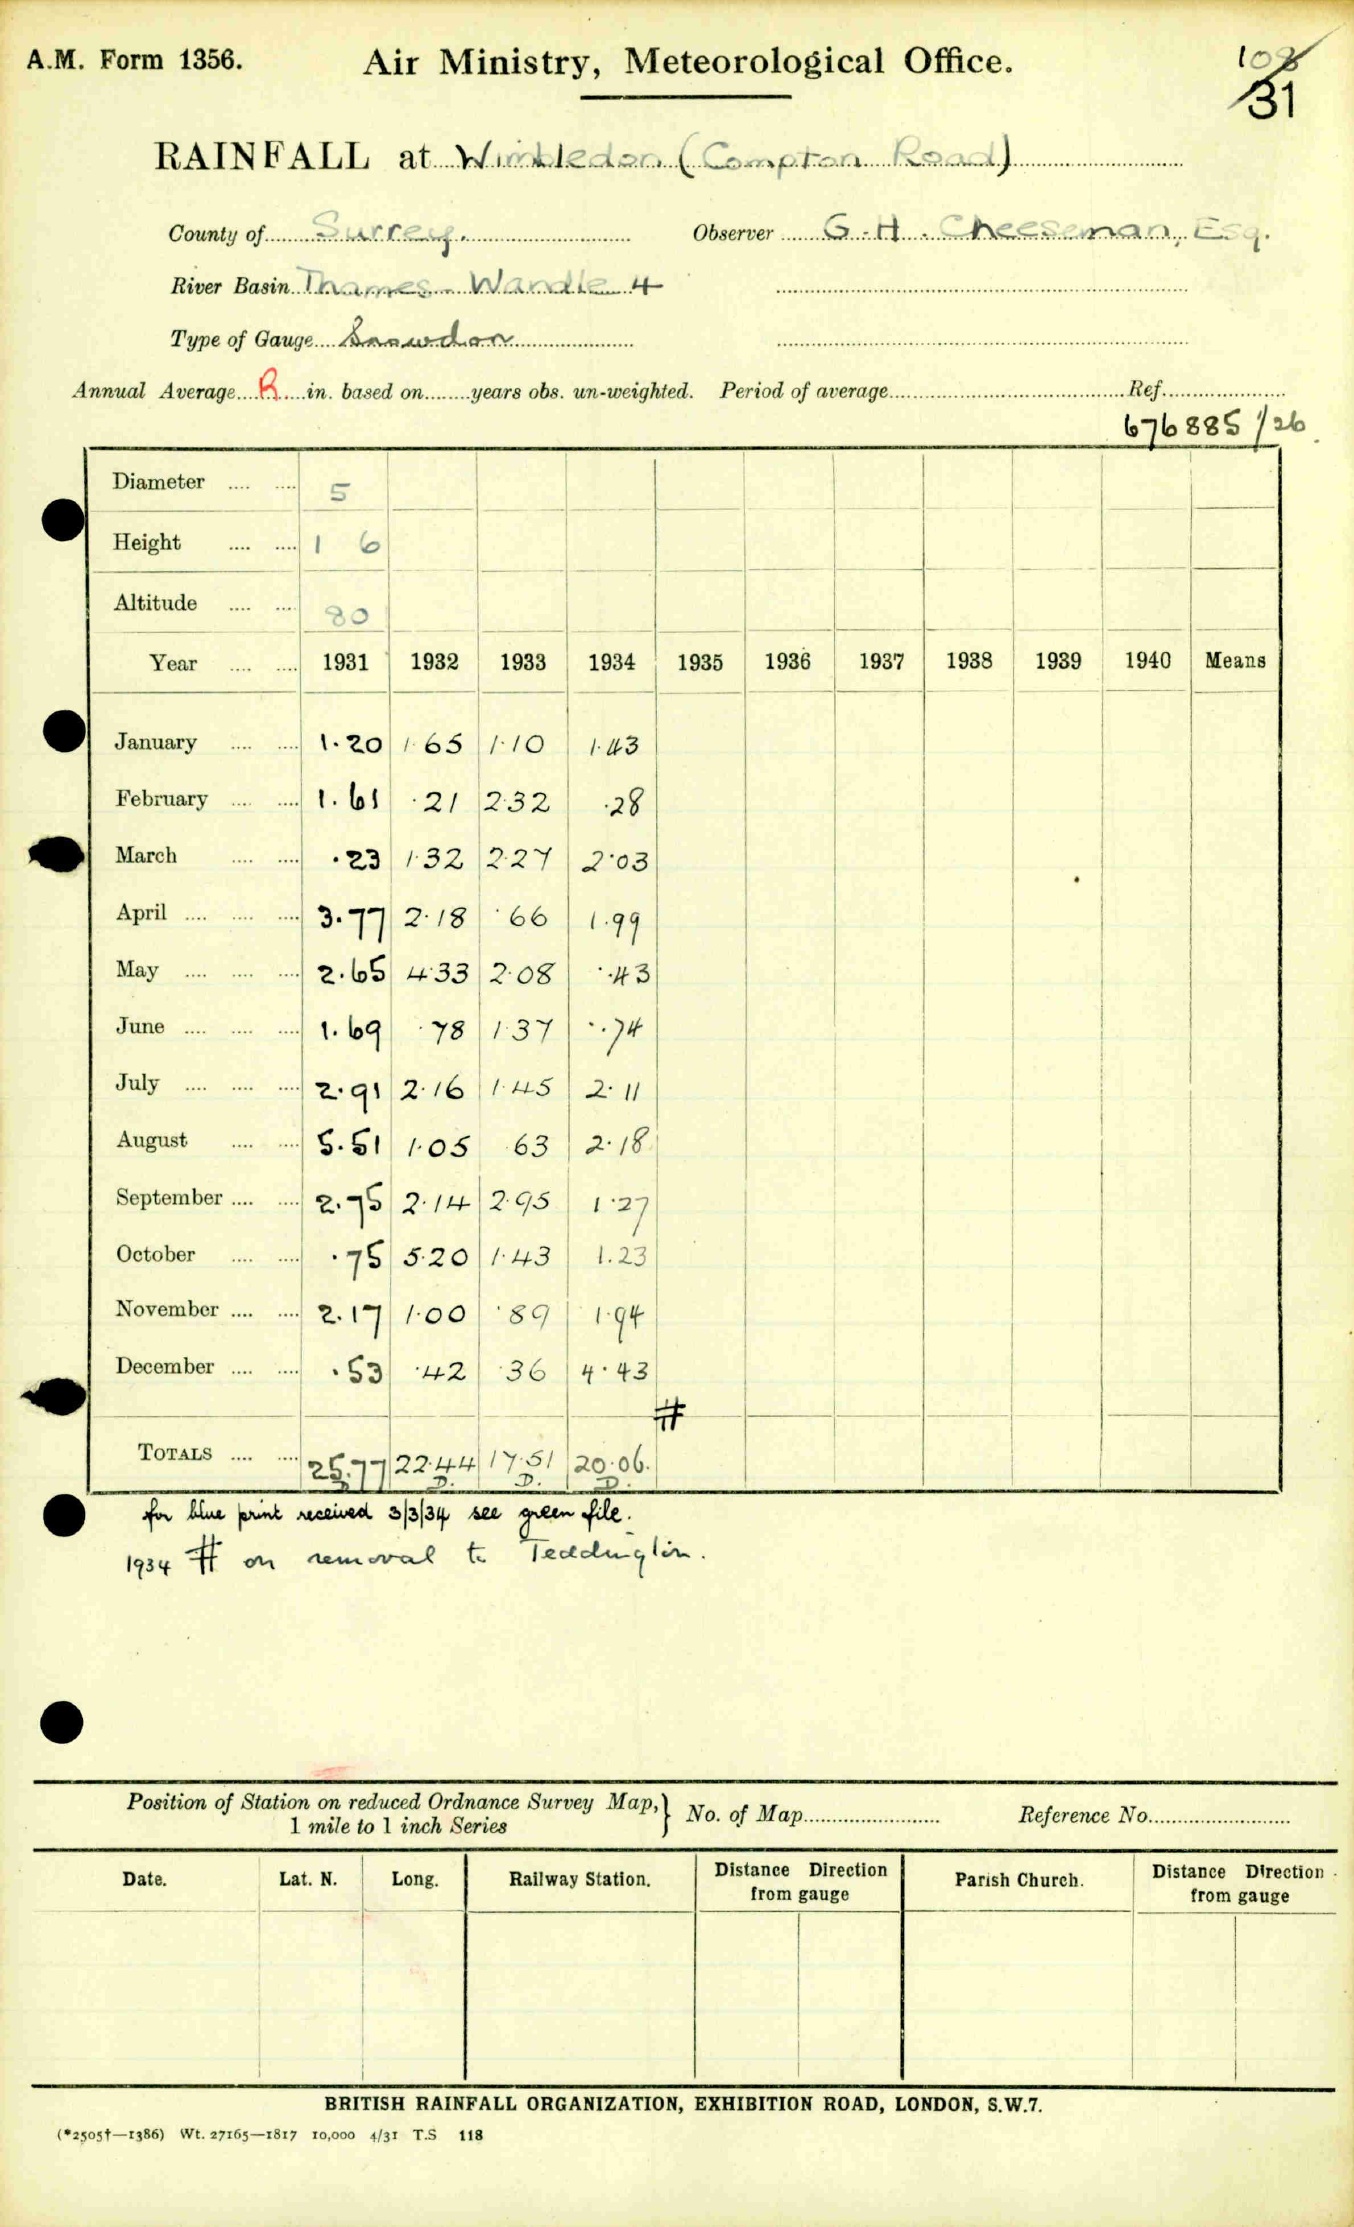 A.M. Form 1356. Air Ministry, Meteorological Office. 108
31
RAINFALL at Wimbledon (Compton Road)
County of Surrey. Observer G. H. Cheeseman, Esq.
River Basin Thames - Wandle 4
Type of Gauge Snowdon
Annual Average R in. based on years obs. un-weighted. Period of average Ref.
676885 /26
Diameter 5
Height 1 6
Altitude 80
Year 1931 1932 1933 1934 1935 1936 1937 1938 1939 1940 Means
January 1.20 1.65 1.10 1.43
February 1.61 .21 2.32 .28
March .23 1.32 2.27 2.03
April 3.77 2.18 .66 1.99
May 2.65 4.33 2.08 .43
June 1.69 .78 1.37 .74
July 2.91 2.16 1.45 2.11
August 5.51 1.05 .63 2.18
September 2.75 2.14 2.95 1.27
October .75 5.20 1.43 1.23
November 2.17 1.00 .89 1.94
December .53 .42 .36 4.43
#
TOTALS 25.77 22.44 17.51 20.06.
D. D. D.
for blue print received 3/3/34 see green file.
1934 # on removal to Teddington.
Position of Station on reduced Ordnance Survey Map, } No. of Map Reference No.
1 mile to 1 inch Series
Date. Lat. N. Long. Railway Station. Distance Direction from gauge Parish Church. Distance Direction from gauge
BRITISH RAINFALL ORGANIZATION, EXHIBITION ROAD, LONDON, S.W.7.
(*2505†—1386) Wt. 27165—1817 10,000 4/31 T.S 118